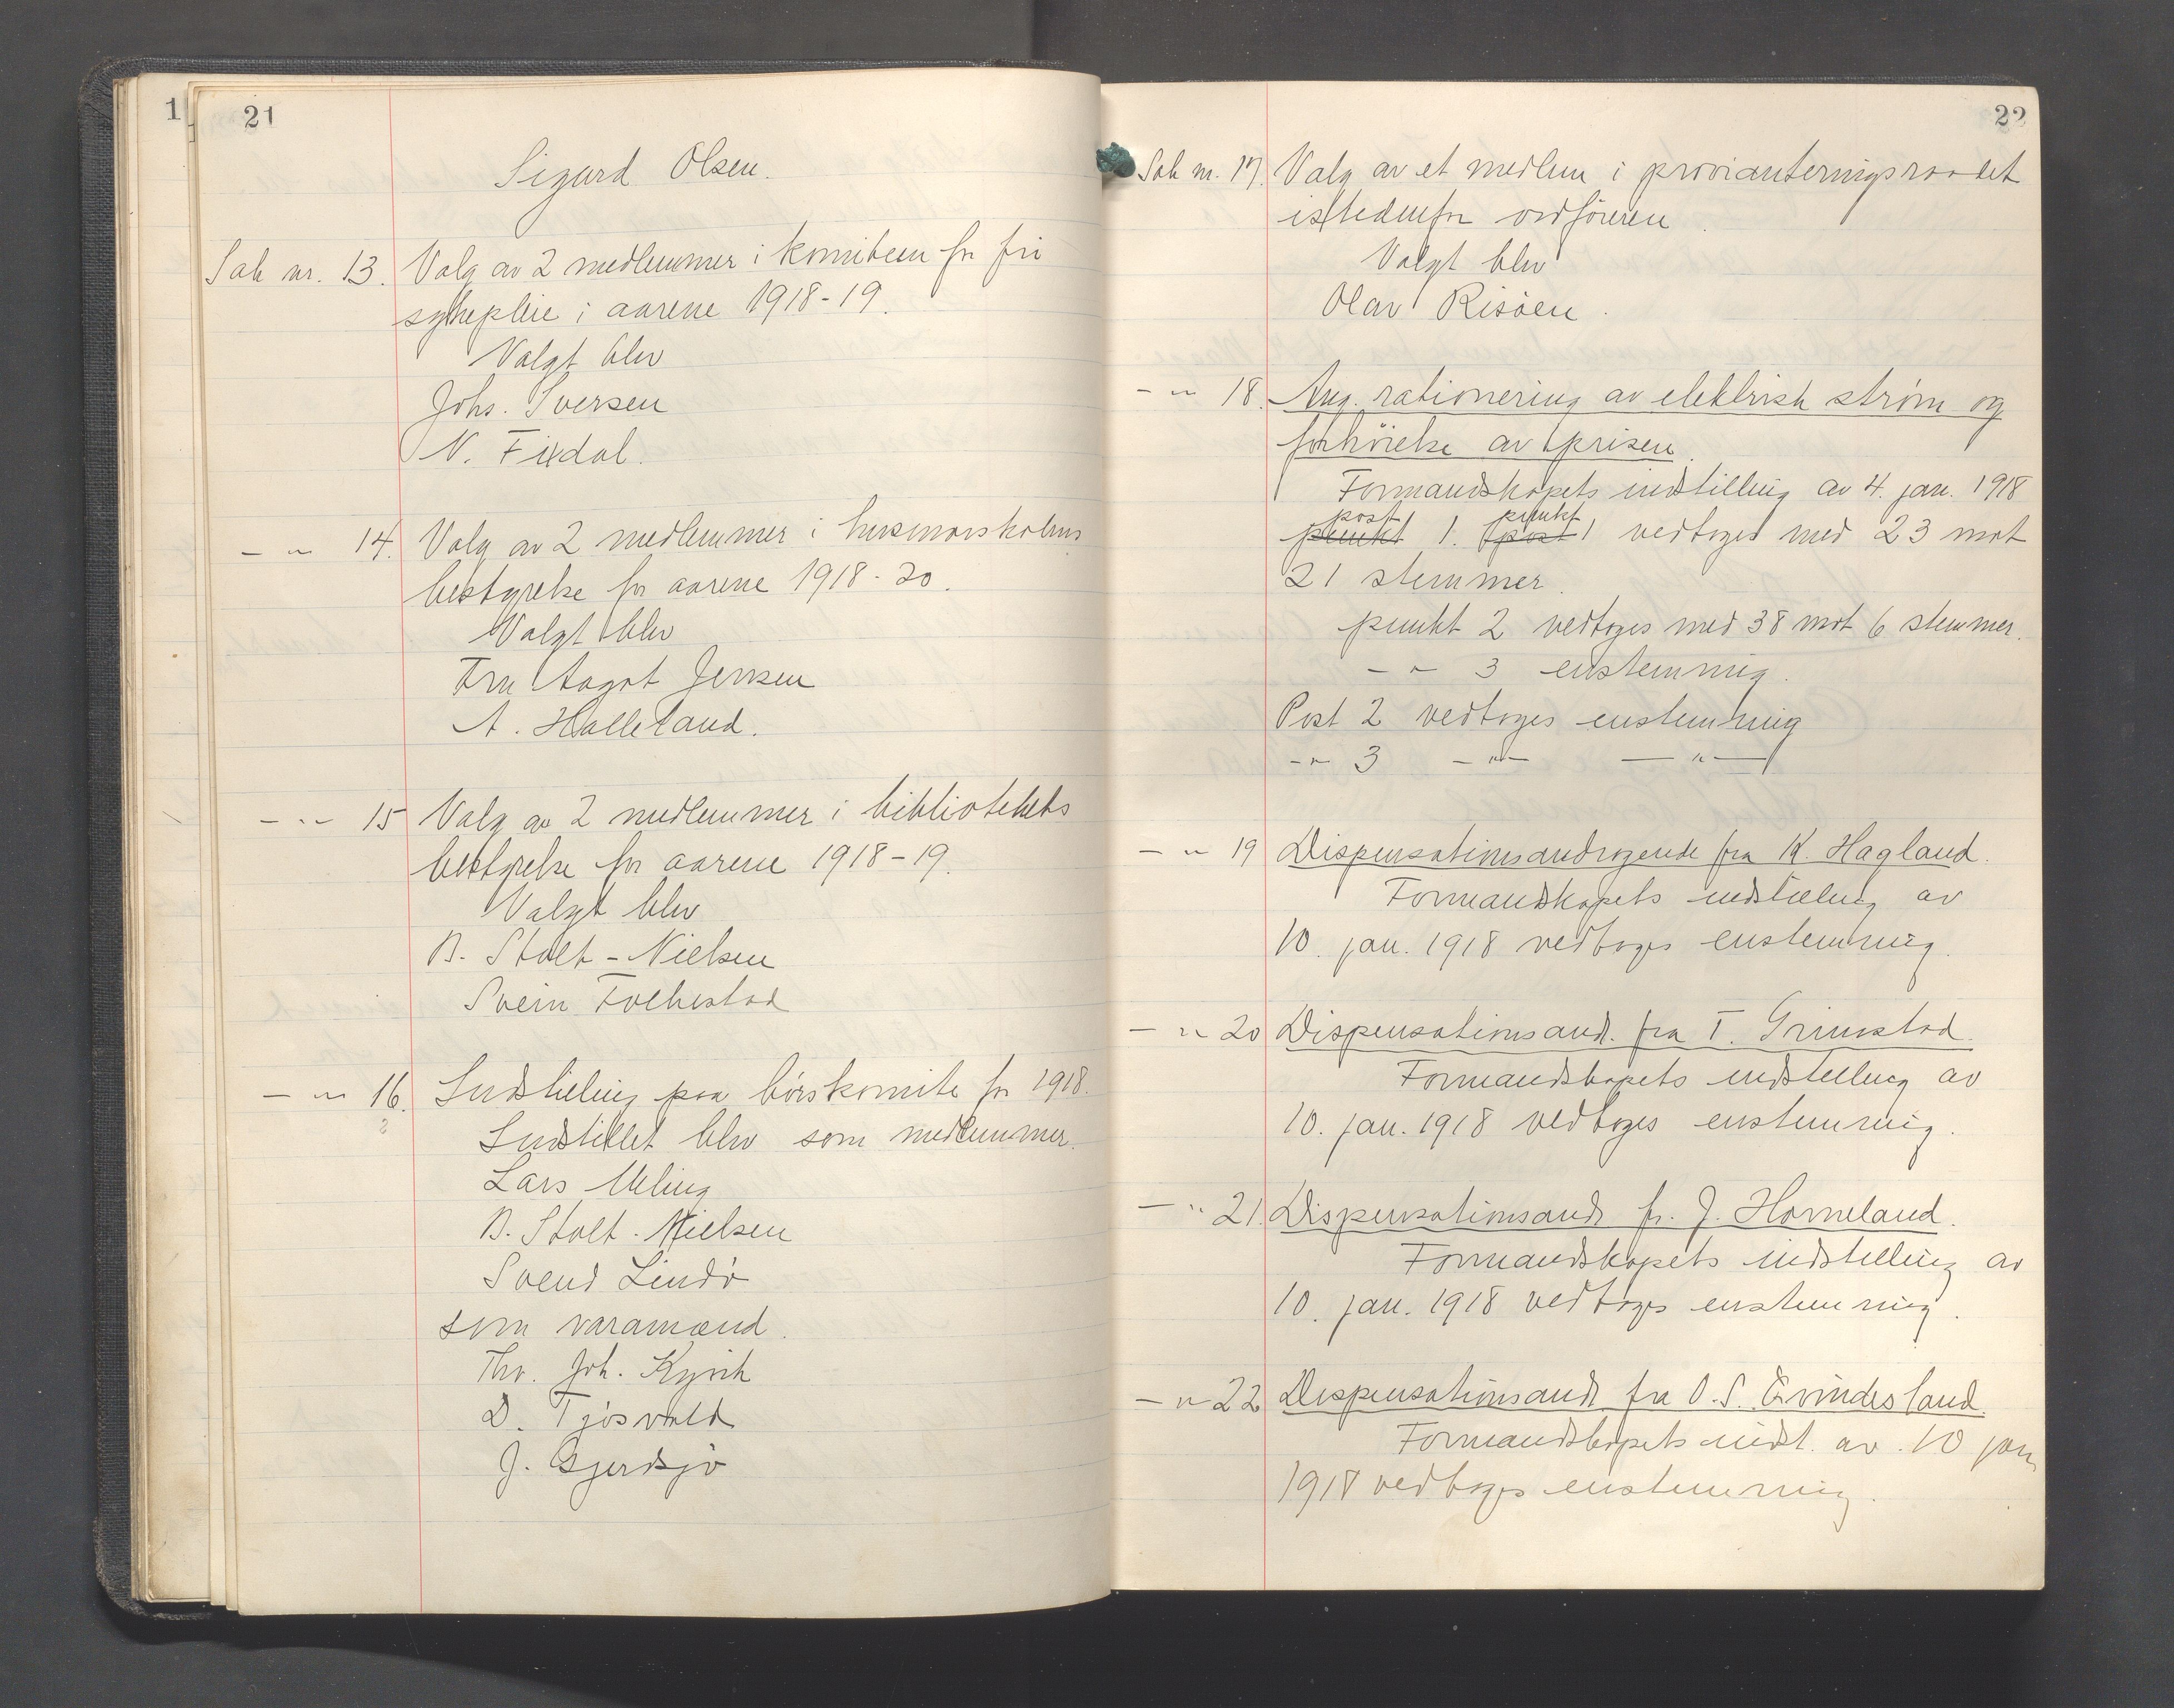 1
21
Sigurd Olsen.
Sak nr. 13. Valg av 2 medlemmer i komiteen for fri
sykepleie i aarene 1918-19.
Valgt blev
Johs. Sversen
N. Fixdal.
- " - 14. Valg av 2 medlemmer i husmorskolens
bestyrelse for aarene 1918-20.
Valgt blev
Fru Aagot Jensen
A. Halleland.
- " - 15 Valg av 2 medlemmer i bibliotekets
bestyrelse for aarene 1918-19.
Valgt blev
B. Stolt-Nielsen
Svein Folkestad
- " - 16. Indstilling paa børskomite for 1918.
Indstillet blev som medlemmer.
Lars Meling
B. Stolt-Nielsen
Svend Lindø
som varamænd.
Thv. Joh. Kyvik
D. Tjøsvold
J. Gjerdsjø
22
Sak nr. 17. Valg av et medlem i provianteringsraadet
istedenfor ordføreren.
Valgt blev
Olav Risøen.
- " - 18. Ang. rationering av elektrisk strøm og
forhøielse av prisen.
Formandskapets indstilling av 4. jan. 1918
post punkt
punkt 1. post 1 vedtoges med 23 mot
21 stemmer.
punkt 2 vedtoges med 38 mot 6 stemmer.
- " - 3 enstemmig.
Post 2 vedtoges enstemmig
- " - 3 - " - - " -
- " - 19 Dispensationsandragende fra K. Hagland.
Formandskapets indstilling av
10. jan. 1918 vedtoges enstemmig.
- " - 20 Dispensationsand. fra T. Grimstad.
Formandskapets indstilling av
10. jan. 1918 vedtoges enstemmig.
- " - 21. Dispensationsand. fr. J. Horneland.
Formandskapets indstilling av
10. jan. 1918 vedtoges enstemmig.
- " - 22 Dispensationsand. fra O. S. Evindesland.
Formandskapets indst. av 10 jan
1918 vedtoges enstemmig.